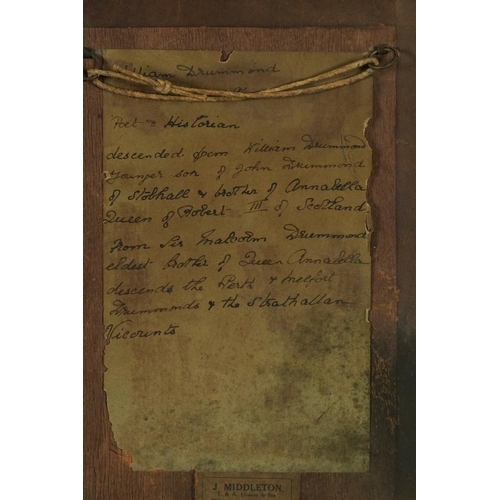 William Drummond
Poet & Historian
descended from William Drummond
younger son of John Drummond
of Stobhall & brother of Annabella
Queen of Robert III of Scotland
From Sir Malcolm Drummond
eldest brother of Queen Annabella
descends the Perth & Melfort
Drummonds & the Strathallan
Vicounts
J. MIDDLETON